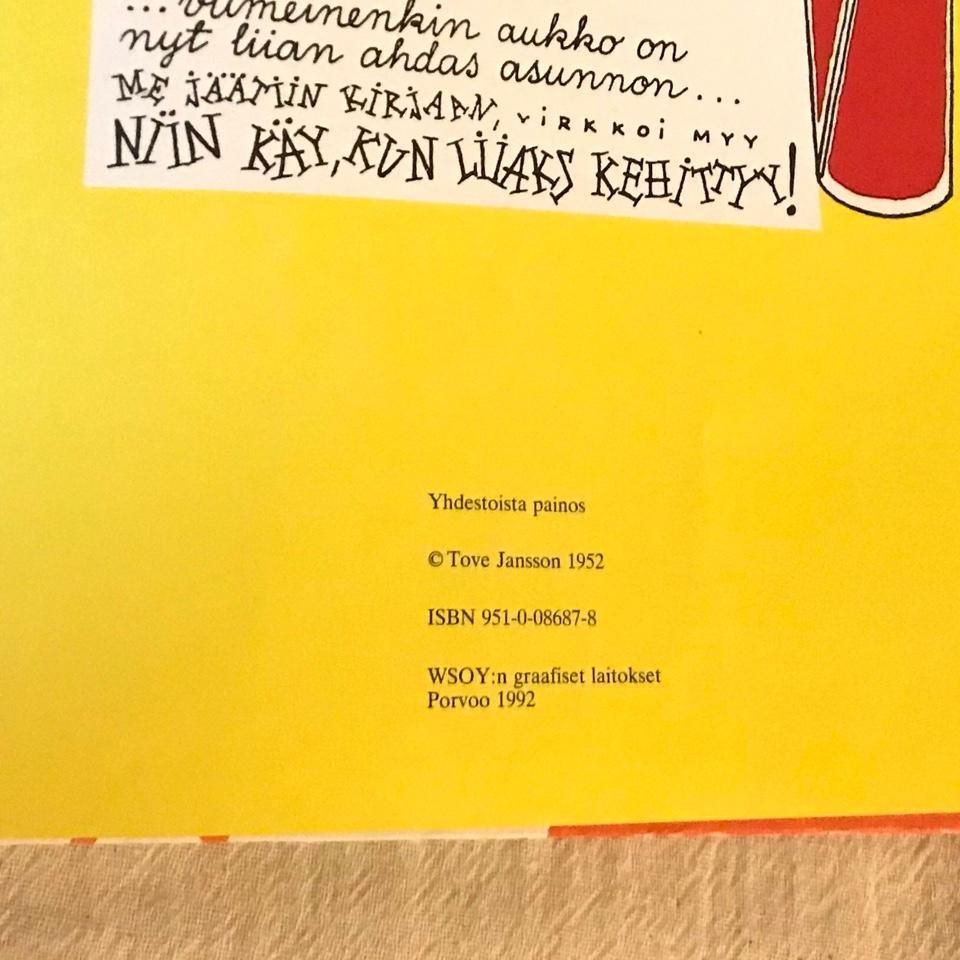 ...viimeinenkin aukko on
nyt liian ahdas asunnon...
ME JÄÄMIN KIRJAAN, VIRKKOI MYY
NIIN KÄY, KUN LIIAKS KEHITTYY!
Yhdestoista painos
© Tove Jansson 1952
ISBN 951-0-08687-8
WSOY:n graafiset laitokset
Porvoo 1992